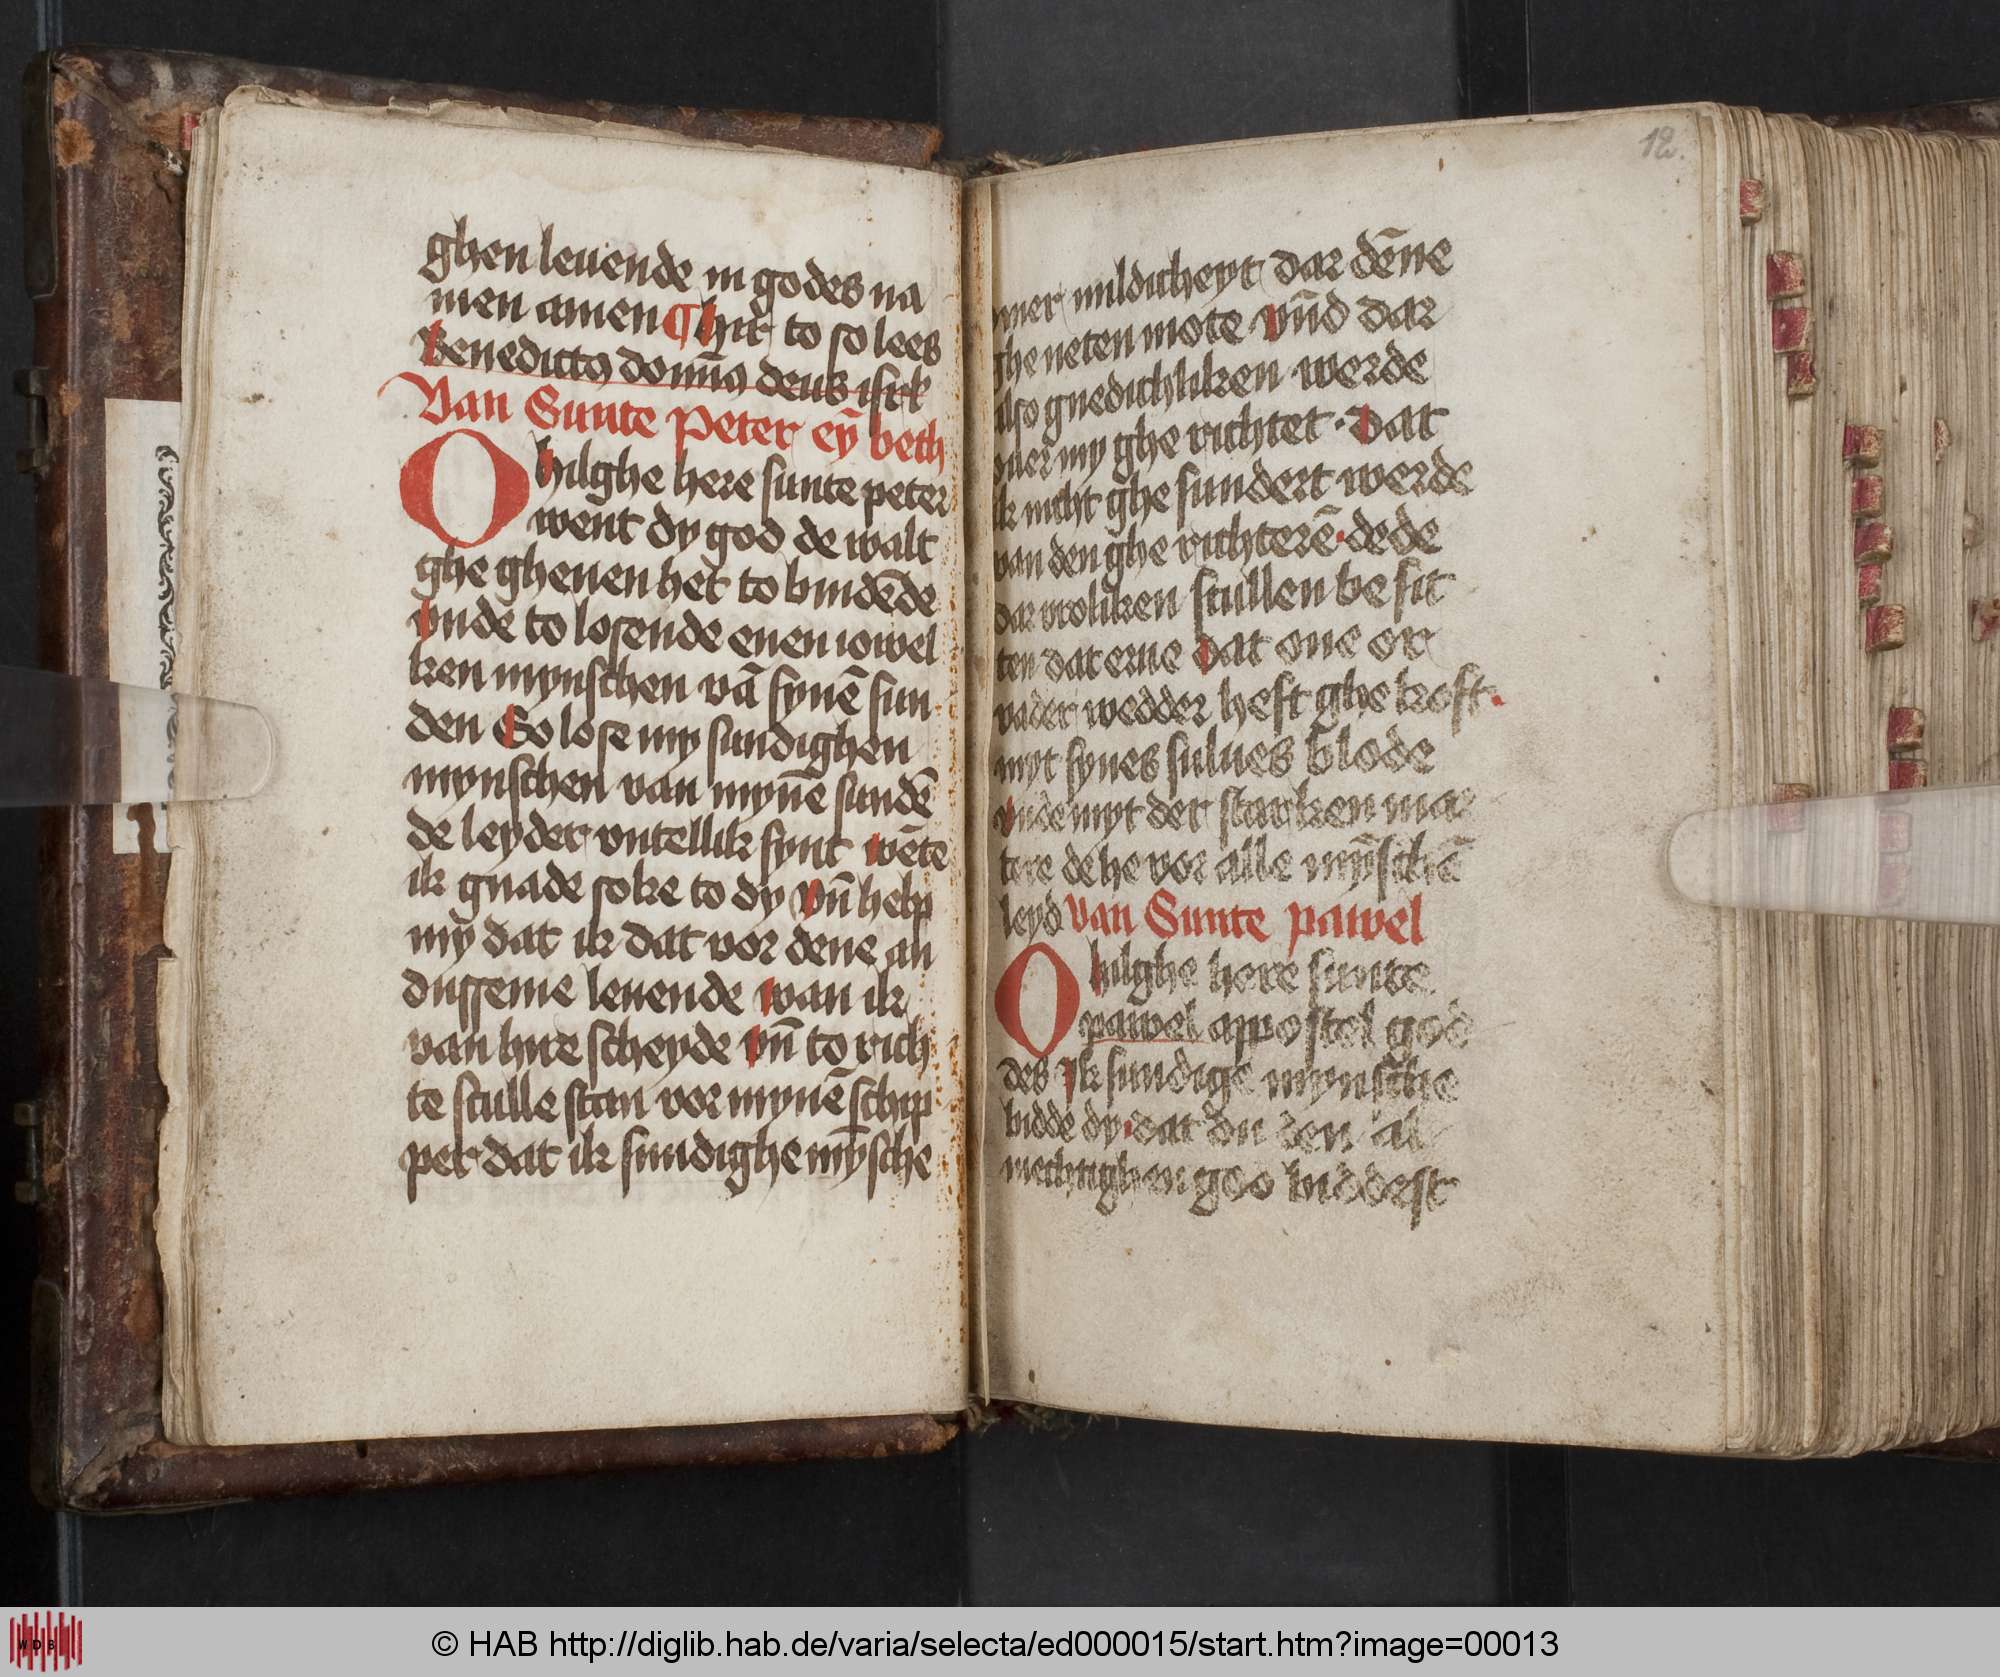 ghen leuende in godes na
men amen ¶ hir to so lees
Benedictꝯ domı̄ꝯ deus isrł
Van Sunte Peter eȳ beth
O hilghe here sunte peter
went dy god de walt
ghe gheuen het to bindēde
vnde to losende enen iowel
ken mynschen vā synē sun
den So lose my sundighen
mynschen van mynē sundē
de leyder vntellik synt wēte
ik gnade soke to dy vn̄ help
my dat ik dat vor dene an
dusseme leuende wan ik
van hire scheyde vn̄ to rich
te sculle stan vor mynē schip
per dat ik sundighe mȳsche
12.
ner mildicheyt dar dēne
ghe neten mote vn̄d dar
also gnedichliken werde
ouer my ghe richtet · Dat
ik nicht ghe sundert werde
van den ghe richterē · de de
dar vroliken scullen be sit
ten dat erue dat one or
vader wedder heft ghe koft ·
myt synes sulues blode
vnde myt der starken mar
tere de he vor alle mȳschē
leyd Van Sunte pawel
O hilghe here sunte
pawel appostel god
des Ik sundige mynsche
bidde dy · dat du den al
mechtighen god biddest
WDB
© HAB http://diglib.hab.de/varia/selecta/ed000015/start.htm?image=00013